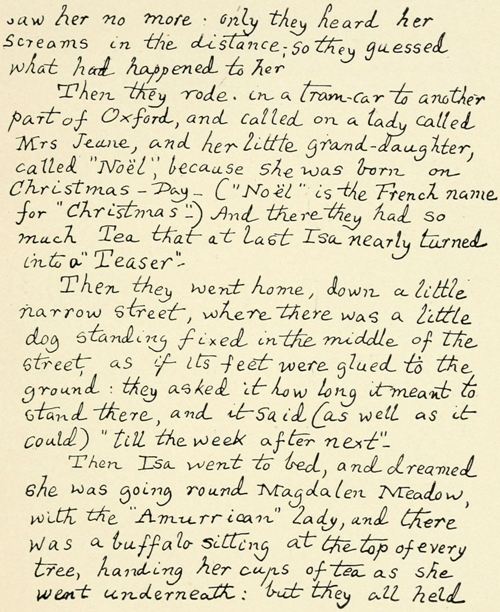 saw her no more: only they heard her
screams in the distance; so they guessed
what had happened to her
Then they rode in a tram-car to another
part of Oxford, and called on a lady called
Mrs Jeune, and her little grand-daughter,
called "Noël", because she was born on
Christmas-Day- ("Noël" is the French name
for "Christmas"-) And there they had so
much Tea that at last Isa nearly turned
into a "Teaser"-
Then they went home, down a little
narrow street, where there was a little
dog standing fixed in the middle of the
street, as if its feet were glued to the
ground: they asked it how long it meant to
stand there, and it said (as well as it
could) "till the week after next"-
Then Isa went to bed, and dreamed
she was going round Magdalen Meadow,
with the "Amurrican" lady, and there
was a buffalo sitting at the top of every
tree, handing her cups of tea as she
went underneath: but they all held